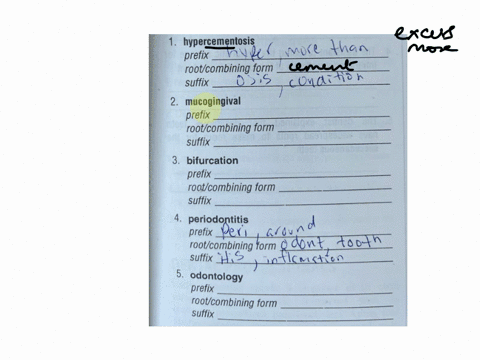 excus
more
1. hypercementosis
prefix hyper, more than
root/combining form cement
suffix osis, condition
2. mucogingival
prefix
root/combining form
suffix
3. bifurcation
prefix
root/combining form
suffix
4. periodontitis
prefix Peri, around
root/combining form odont, tooth
suffix itis, inflamation
5. odontology
prefix
root/combining form
suffix